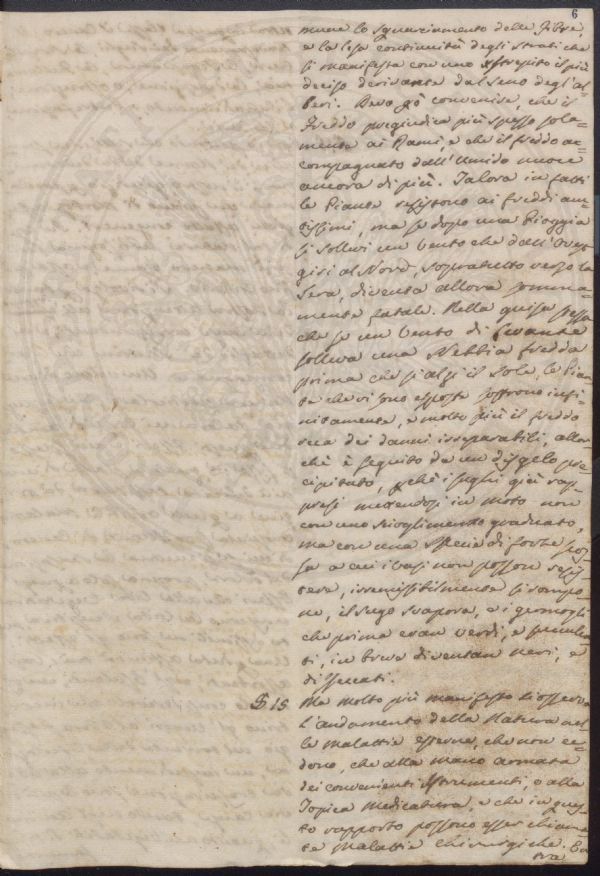 6
muove lo squarciamento delle Fibre,
e la lesa continuità degli strati che
si manifesta con uno strepito il più
deciso derivante dal seno degl'al=
beri. Devo pò convenire, che il
Freddo pregiudica più spesso sola=
mente ai Rami, e che il freddo ac=
compagnato dall'Umido nuoce
ancora di più. Talora in fatti
le Piante resistono ai freddi aus=
tissimi, ma se dopo una Pioggia
si sollevi un Vento che dall'Ovest
giri al Nord, sopratutto verso la
Sera, diventa allora somma=
mente fatale. Nella guisa stessa
che se un Vento di Levante
solleva una Nebbia fredda
prima che s'alzi il Sole, le Pian=
te che vi sono esposte soffrono infi=
nitamente, e molto più il freddo
reca dei danni irreparabili, allor
chè è seguito da un disgelo pre
cipitato, pchè i sughi già rap=
presi mettendosi in moto non
con uno scioglimento graduato,
ma con una specie di forte for=
za a cui i vasi non posson resis=
tere, irremissibilmente si rompo=
no, il sugo svapora, e i germogli
che prima eran verdi, e succulen=
ti, in breve diventan neri, e
disseccati.
§ 15 Ma molto più manifesto si osserva
l'andamento della Natura nel=
le malattie esterne, che non ce=
dono, che alla mano armata
dei convenienti Istrumenti, o alla
Topica Medicatura, e che in ques=
to rapporto possono esser chiama
te Malattie Chirurgiche. Ca